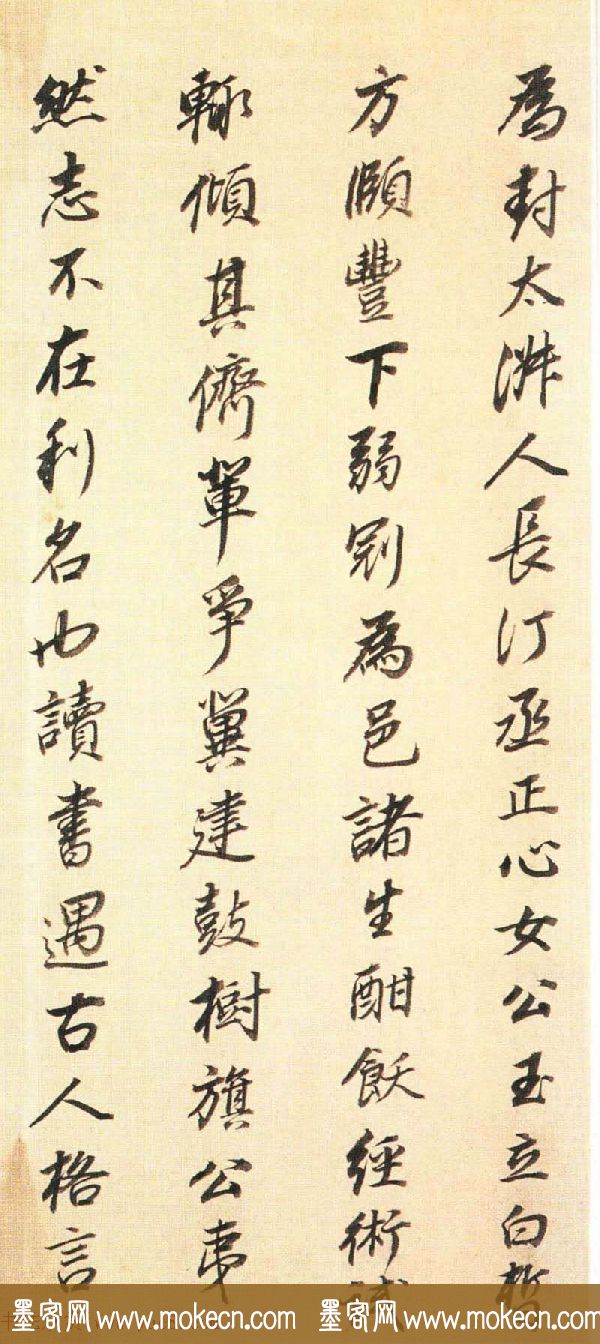 為封太淑人長汀丞正心女公玉立白皙
方頤豐下弱冠為邑諸生酣飫經術試
輒傾其儕輩爭冀建鼓樹旗公弗
然志不在利名也讀書遇古人格言
墨客网 www.mokecn.com 墨客网 www.mokecn.com